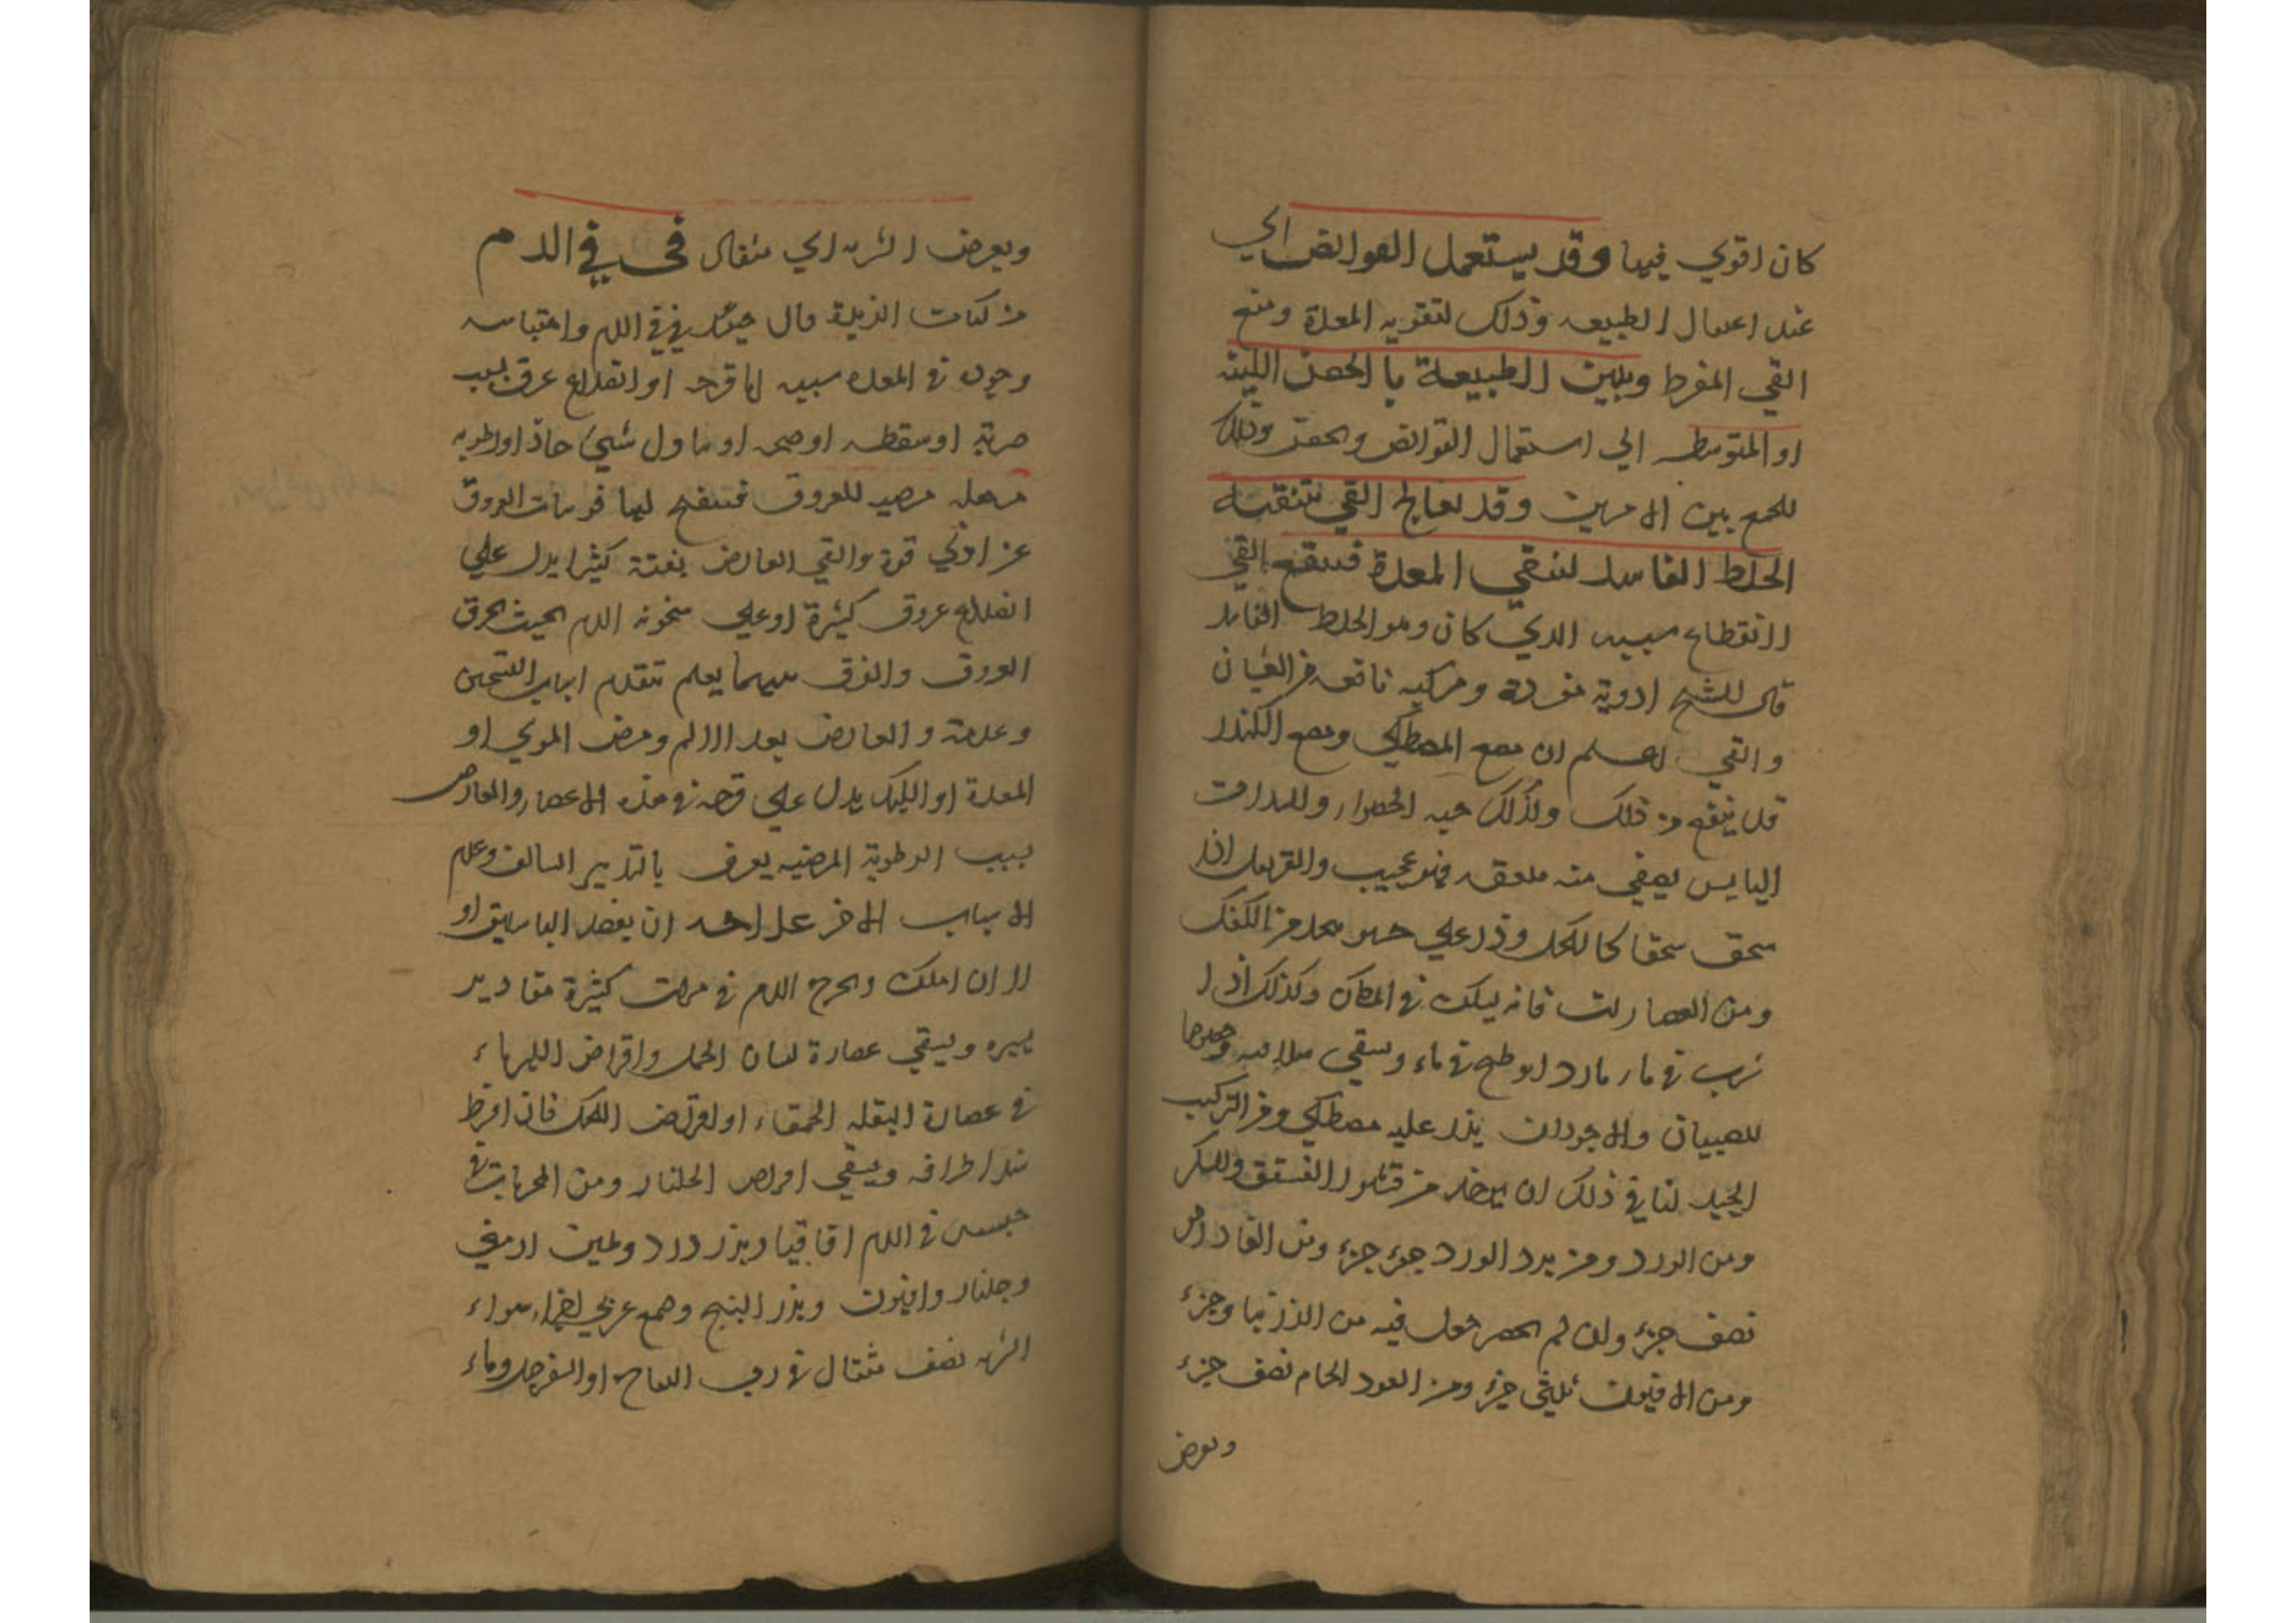 كان اقوي فيها وقد يستعمل القوابض الي
عند اعتقال الطبيعه وذلك لتقويه المعدة ومنع
القي المفرط وبلين الطبيعة با الحقن اللينه
او المتوسطه الي استعمال القوابض والحقن وذلك
للجمع بين الامرين وقد يعالج القي بتنقيه
الخلط الفاسد لتنقي المعدة فينقع القي
لانقطاع سببه الدي كان وهو الخلط الفاسد
قال الشيخ ادوية مفردة ومركبه نافعه من الغثيان
والقي اعلم ان مضع المصطكي ومضع الكندر
قد ينفع من ذلك ولذلك حبه الخضرا والسداب
اليابس يسقي منه ملعقه فهو عجيب والقرنفل اذا
سحق سحقا كالكحل وذر علي حسو متخذ من الكعك
ومن العصارات فانه ليسكن في المكان وكذلك اذا
شرب في ماء بارد او طبخ في ماء ويسقي سلاقته وحدها
للصبيان والاجودان يذر عليه مصطكي ومن التركيب
الجيد لنا في ذلك ان يوخذ من قشور الفستق والسكر
ومن الورد ومن برد الورد جزء جزء ومن الفادازهر
نصف جزء وان لم يحضر جعل فيه من الزرنبا وجزء
ومن الافيون ثلثي جزء ومن العود الخام نصف جزء
ويعرض
ويعرض الشربه الي مثقال في قي الدم
من كتاب الذخيرة قال حينئذ في قي الدم واحتباسه
وجوده في المعده سببه اما قرحه او انقلاع عرق بسبب
ضربة او سقطه او صيحه او تناول شيئ حاد او رطوبه
مرهله مرخيه للعروق فتنفتح لها فوهات العروق
عن ادني قوة والقي العارض بغتة كثيرا يدل علي
انقلاع عروق كثيرة او علي سخونه الدم بحيث يحرق
العروق والفرق بينهما يعلم تقدم اسباب التسخين
وعدمه والعارض بعد الالم ومرض المري او
المعدة او الكبد يدل علي قرحه في هذه الاعضاء والعارض
بسبب الرطوبة المرخيه يعرف بالتدبير السالف وعدم
الاسباب الاخر علاجه ان يفصد الباسليق او
لا ان املك ويخرج الدم في مرات كثيرة مقادير
يسيره ويسقي عصارة لسان الحمل واقراض الكهرباء
في عصارة البقله الحمقاء او اقراض الكهك فان افرط
شد اطرافه ويسقي اقراص الجلنار ومن المجربات في
حبس قي الدم اقاقيا وبزر ورد وطين ارمني
وجلنار وافيون وبزر البنج وصمع عربي اجزاء سواء
الشربه نصف مثقال في رب التفاح او السفرجل وماء